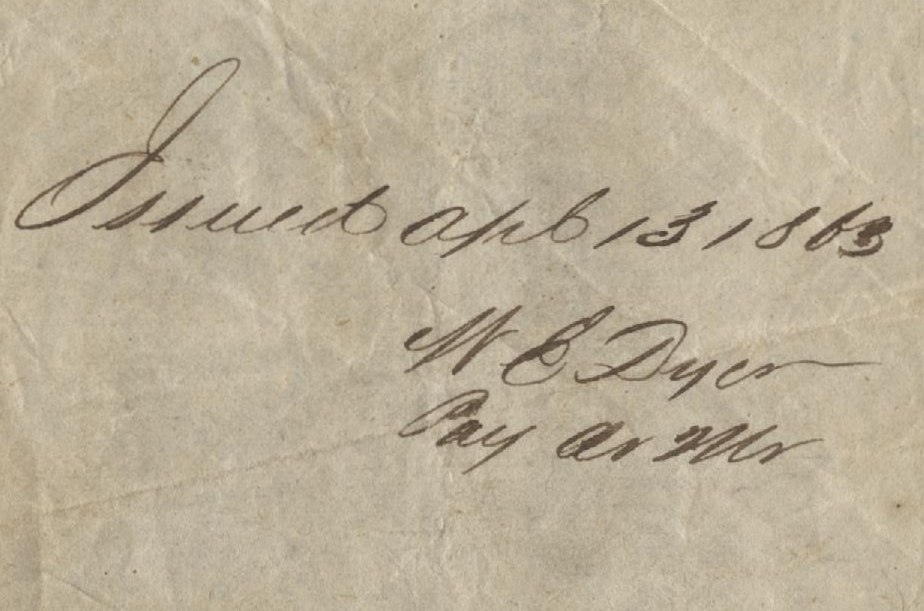 Issued Apl 13, 1863
W E Dyer
Pay Qr Mr